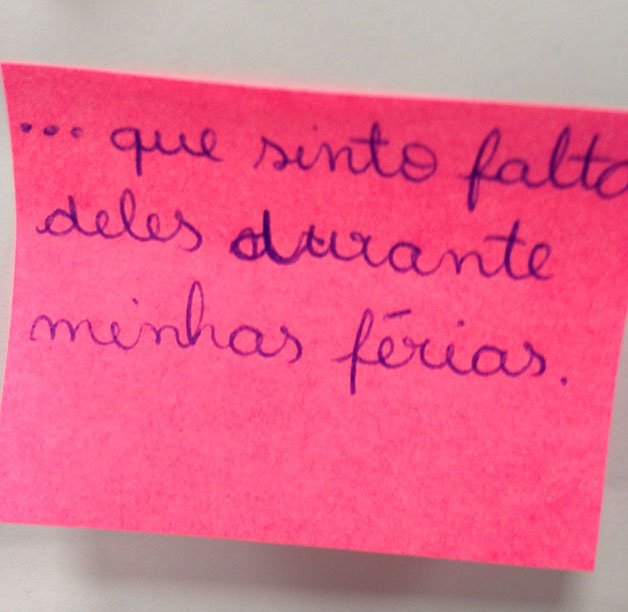 ... que sinto falta
deles durante
minhas férias.